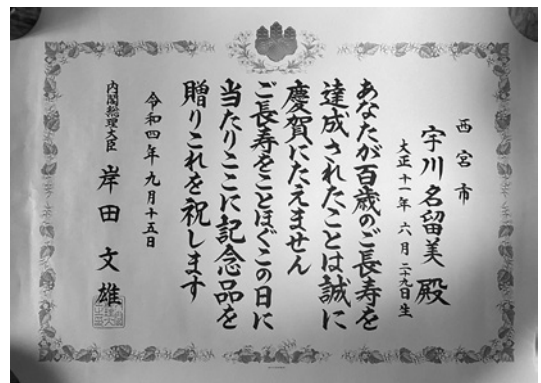 西宮市
宇川名留美殿
大正十一年六月二十九日生
あなたが百歳のご長寿を
達成されたことは誠に
慶賀にたえません
ご長寿をことほぐこの日に
当たりここに記念品を
贈りこれを祝します
令和四年九月十五日
内閣総理大臣 岸田文雄